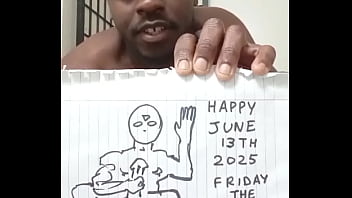 HAPPY
JUNE
13TH
2025
FRIDAY
THE